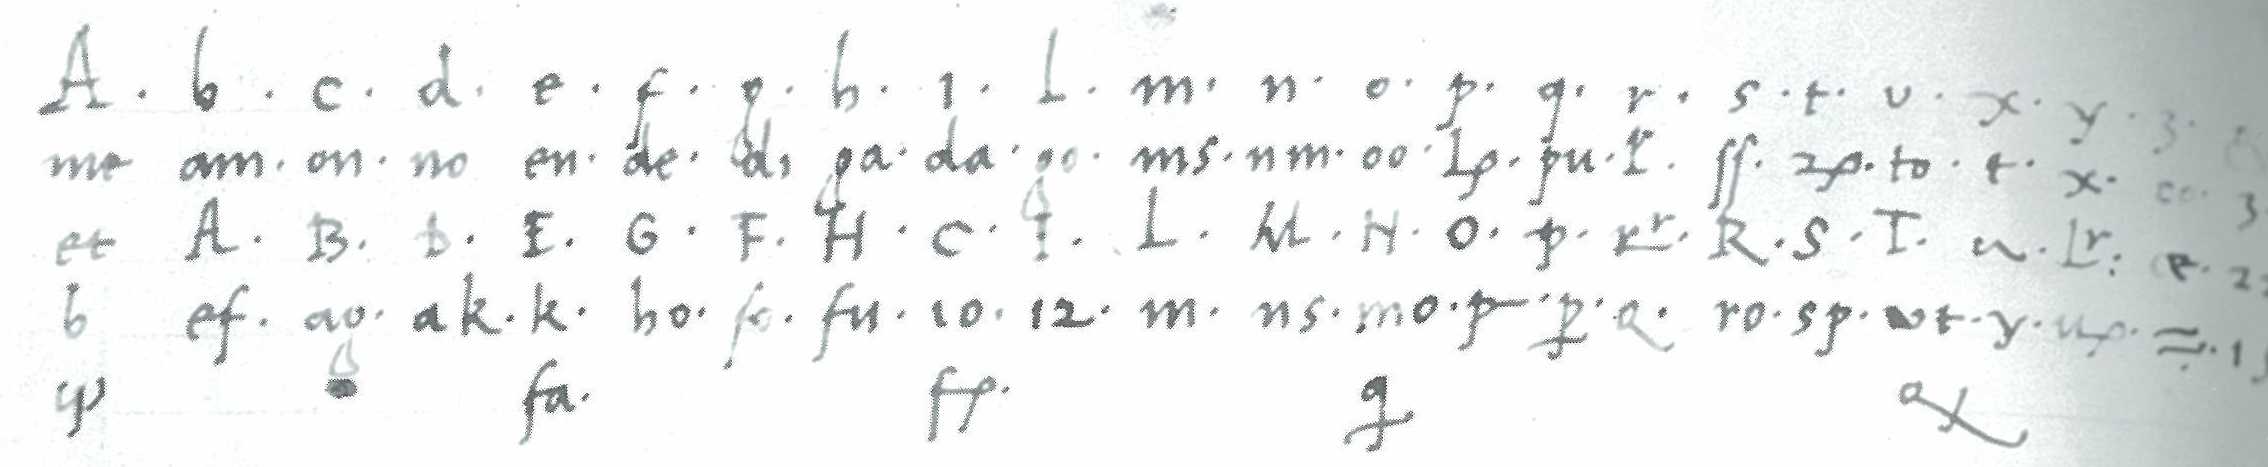 A · b · c · d · e · f · g · h · 1 · L · m · n · o · p · q · r · s · t · v · x · y · 3 ·
me am · on · no en · de · di ga · da · go · ms · nm · oo · pu · ſſ · to · t · x · co · 3
et A · B · D · E · G · F · H · C · I · L · M · N · O · p · R · S · T ·
b ef · ag · a k · k · ho · fo · fu · 10 · 12 · m · ns · mo · p · q · ro · sp · t · y ·
ψ fa · q